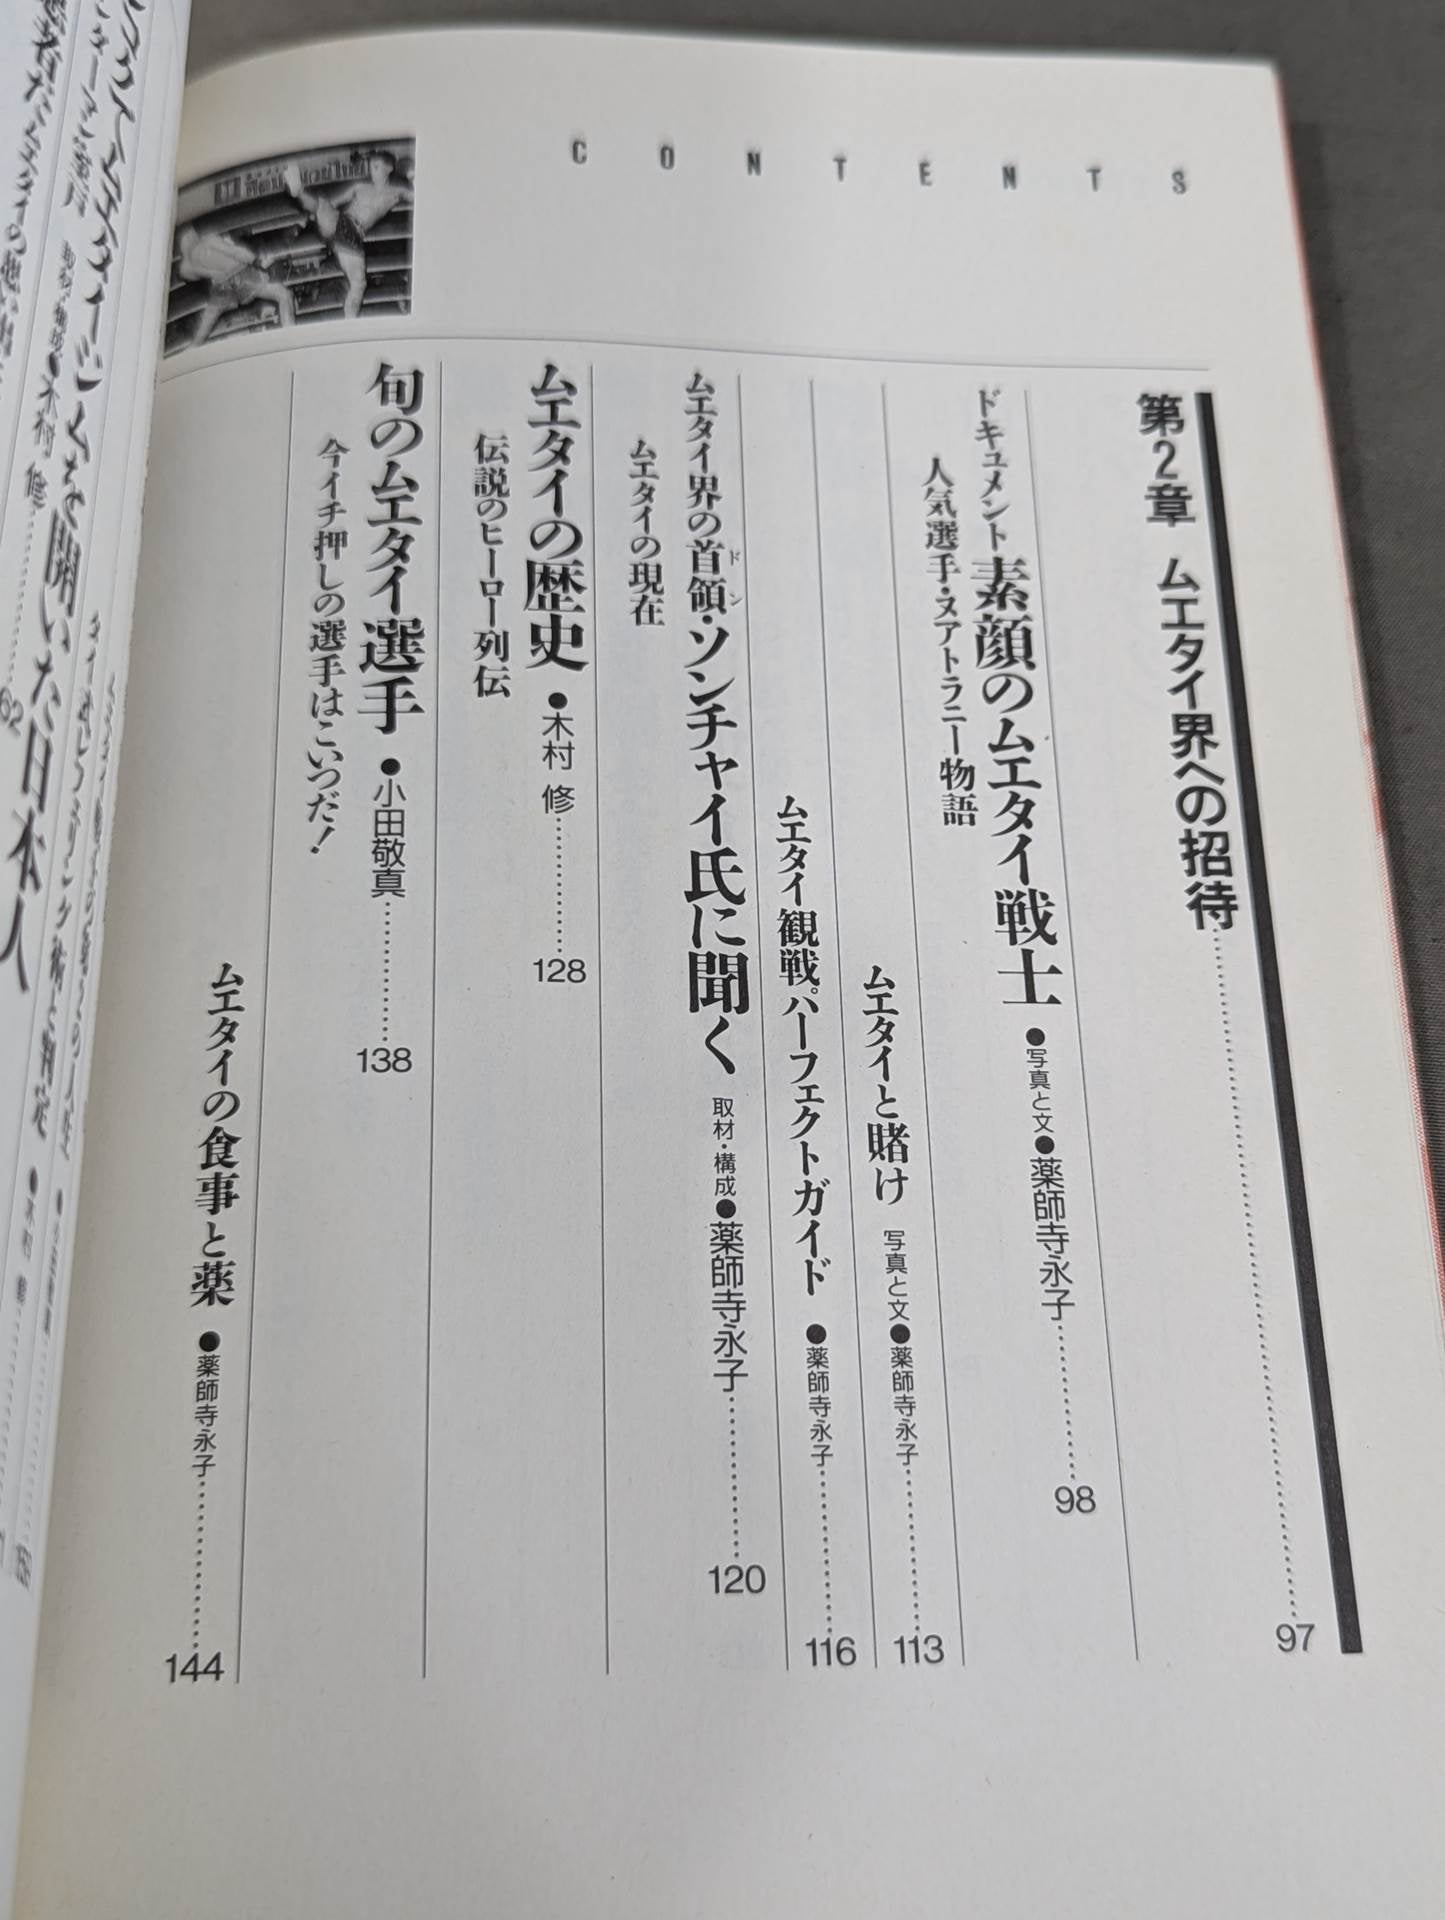 CONTENTS
第2章 ムエタイ界への招待……97
ドキュメント 素顔のムエタイ戦士 ●写真と文●薬師寺永子……98
人気選手・ヌアトラニー物語
ムエタイと賭け 写真と文●薬師寺永子……113
ムエタイ観戦パーフェクトガイド ●薬師寺永子……116
ムエタイ界の首領・ソンチャイ氏に聞く 取材・構成●薬師寺永子……120
ドン
ムエタイの現在
ムエタイの歴史 ●木村 修……128
伝説のヒーロー列伝
旬のムエタイ選手 ●小田敬真……138
今イチ押しの選手はこいつだ!
ムエタイの食事と薬 ●薬師寺永子……144
を開いた日本人
取材・構成●木村 修……62
術と判定 ●木村 修